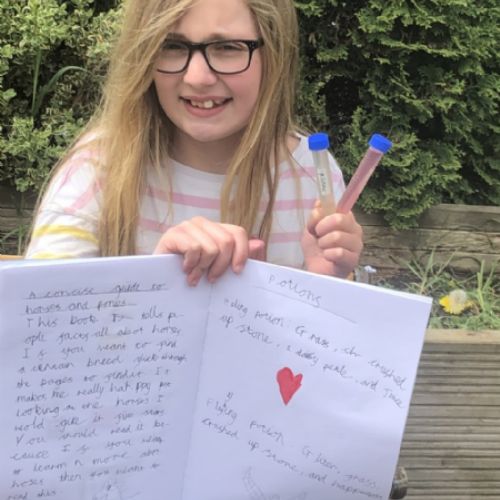 A concise guide to
horses and ponies
This book is tells pe-
ople facts all about horses
I s you want to find
a certain breed flick through
the pages to find it I t
makes me really happy
looking at the horses I
would give it five stars
You should read it be-
cause I s you want
to learn n more about
horses then you want to
read this
Potions
potion: Grass,
crushed
up stone, 1 daisy petle, and
Flying potion: Green, grass,
crushed up stone, and happiness